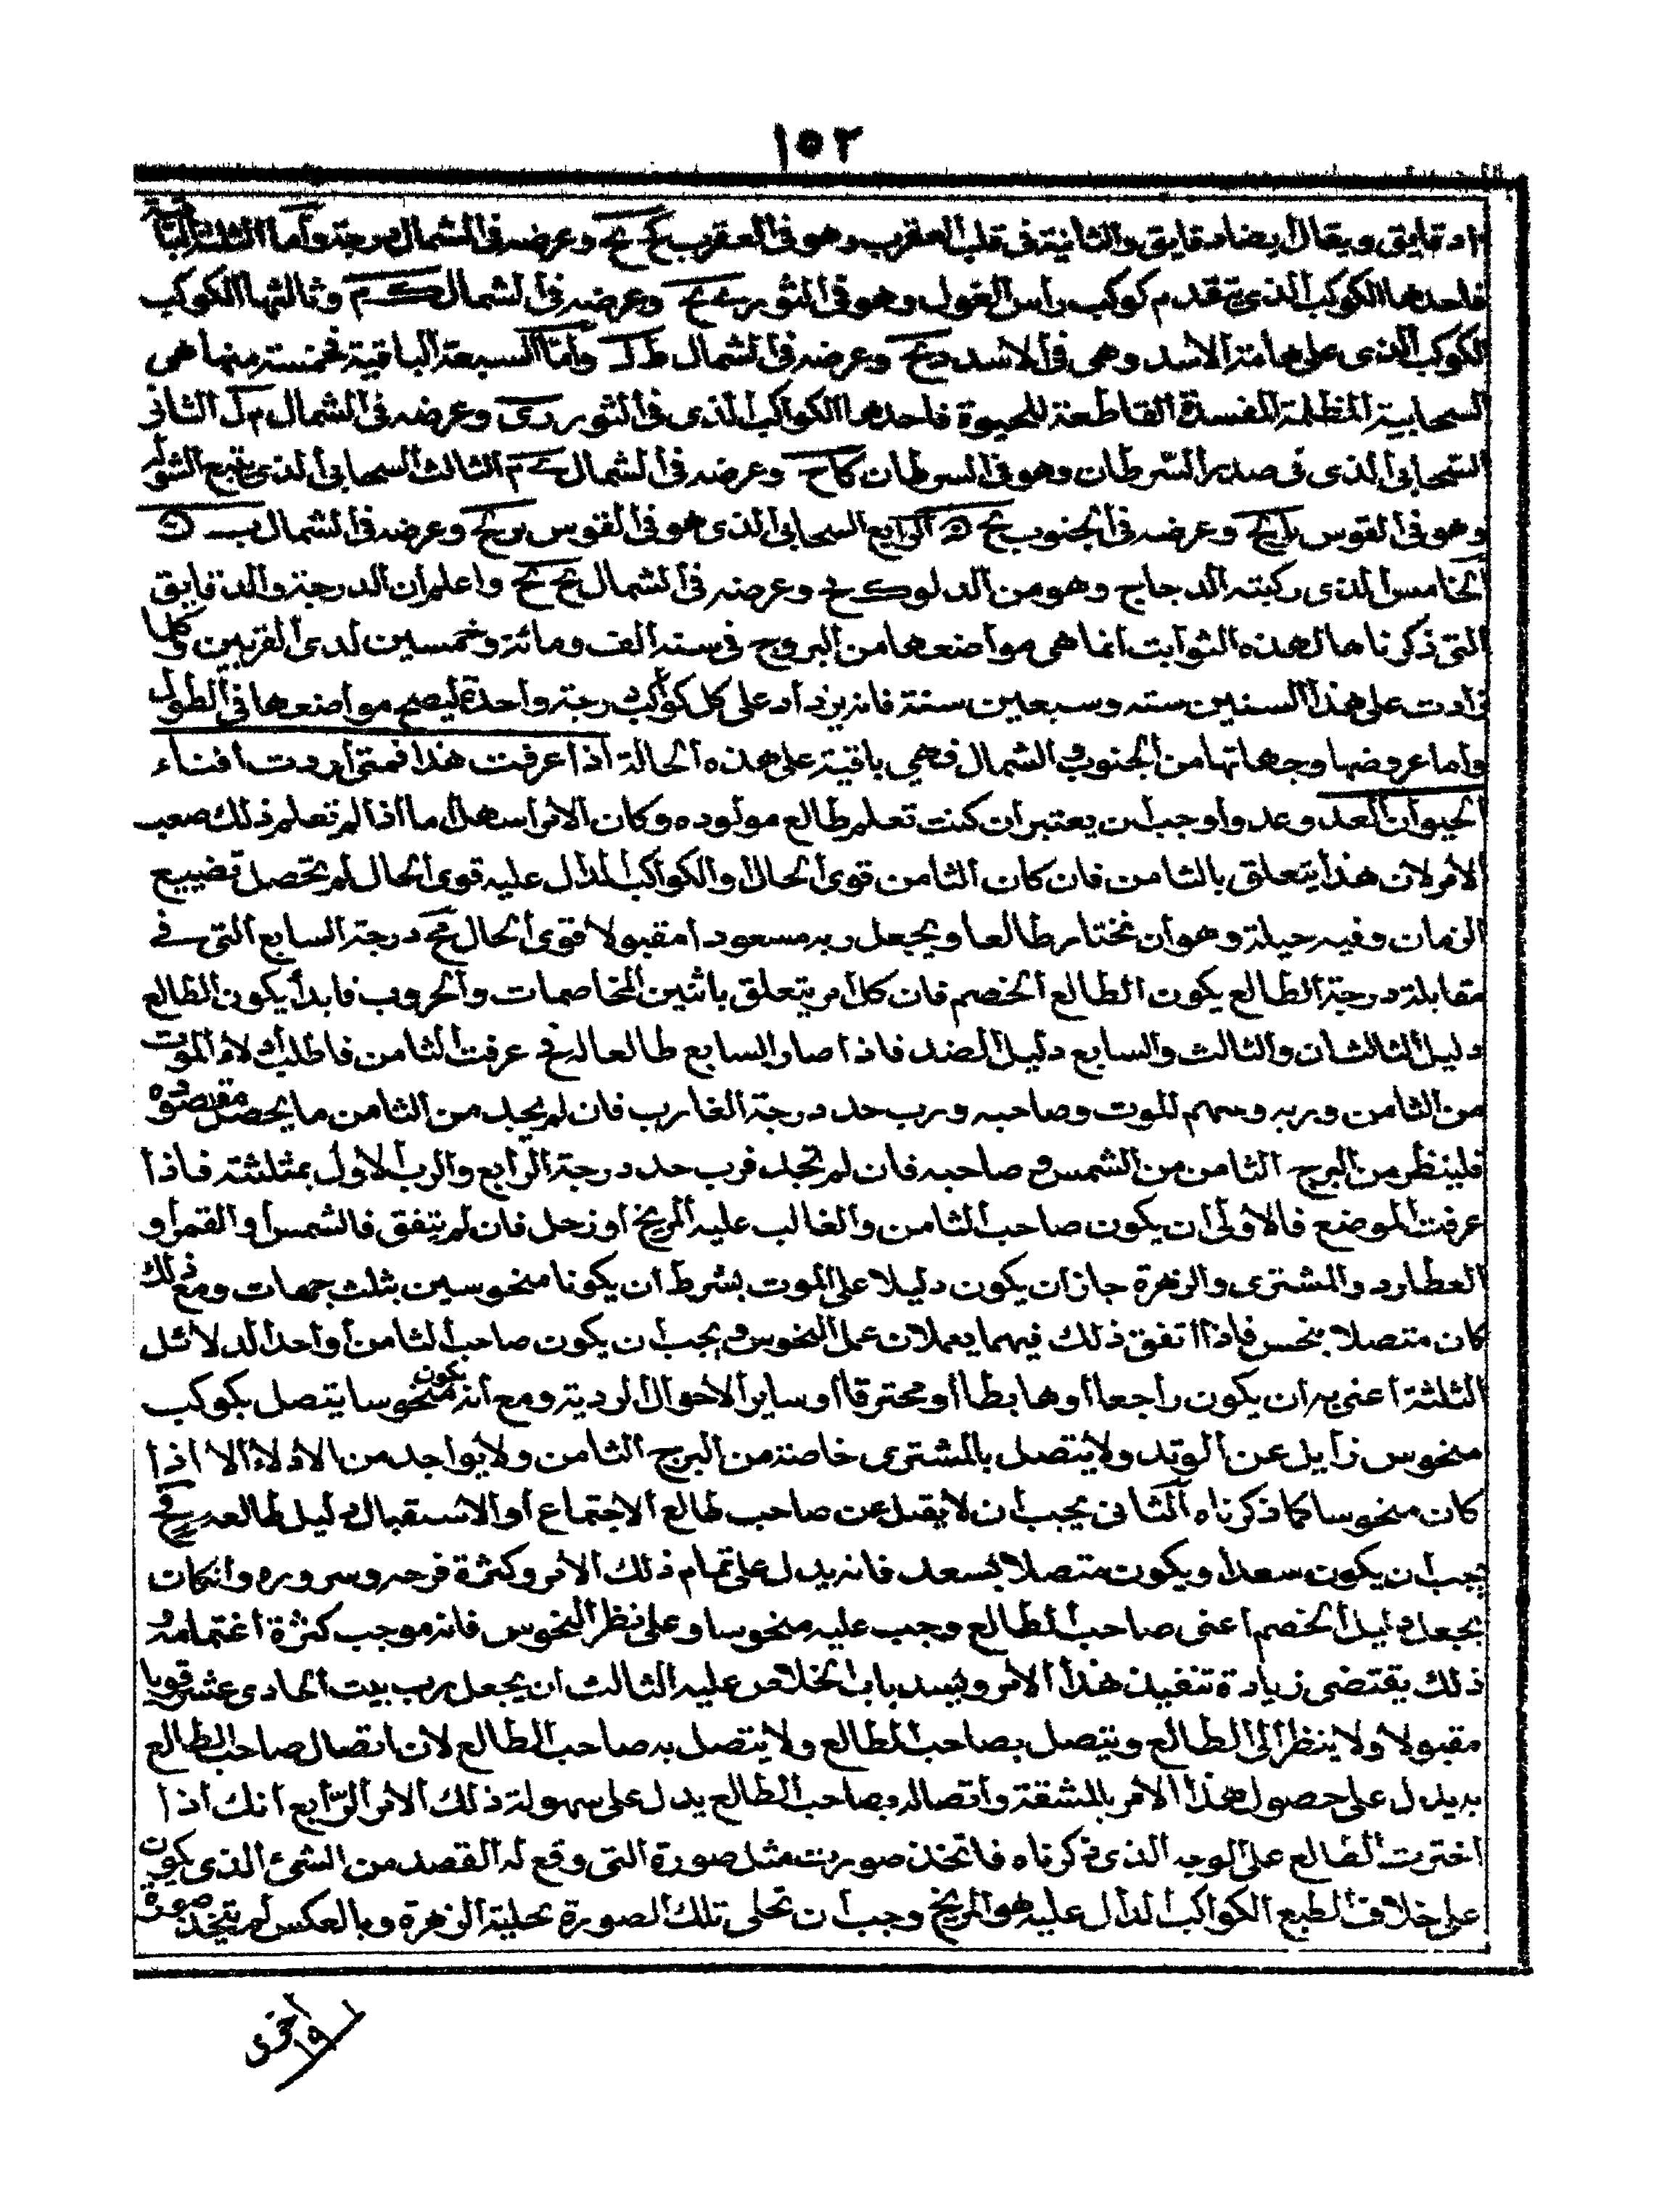 ١٥٢
دقايق ويقال ايضا دقايق والثانية فى قلب العقرب وهو فى العقرب كح يح وعرضه فى الشمال درجة واما الثلثة الباقية
فاحدها الكوكب الذى يتقدم كوكب راس الغول وهو فى الثور وعرضه فى الشمال وثالثها الكوكب
الكوكب الذى على هامة الاسد وهى فى الاسد وعرضه فى الشمال ط ك واما السبعة الباقية فخمسة منها هى
السحابية المظلمة المفسدة القاطعة للحيوة فاحدها الكواكب الذى فى الثور وعرضه فى الشمال م ك الثانى
السحابى الذى فى صدر السرطان وهو فى السرطان كا ح وعرضه فى الشمال الثالث السحابى الذى يتبع الشوله
وهو فى القوس وعرضه فى الجنوب يح الرابع السحابى الذى هو فى القوس وعرضه فى الشمال
الخامس الذى ركبته الدجاج وهو من الدلو ك يح وعرضه فى الشمال يح يح واعلم ان الدرجة والدقايق
التى ذكرناها لهذه الثوابت انما هى مواضعها من البروج فى سنه الف ومائة وخمسين لدى القرنين وكلما
زادت على هذا السنين سته وسبعين سنة فانه يزداد على كل كوكب درجة واحدة ليصح مواضعها فى الطول
واما عروضها وجهاتها من الجنوب والشمال فهى باقية على هذه الحالة اذا عرفت هذا فمتى اردت افناء
الحيوان العد وعد واوجب ان يعتبر ان كنت تعلم طالع مولوده وكان الامر اسهل اما اذا لم تعلم ذلك صعب
الامر لان هذا يتعلق بالثامن فان كان الثامن قوى الحال والكواكب الدال عليه قوى الحال لم يحصل تضييع
الزمان وفيه حيلة وهو ان تختار طالعا ويجعل ربه مسعودا مقبولا قوى الحال فح درجة السابع التى فى
مقابلة درجة الطالع يكون الطالع الخصم فان كل امر يتعلق باثنين المخاصمات والحروب فابدأ يكون الطالع
دليل الثالثان والثالث والسابع دليل الضد فاذا صار السابع طالعاله فح عرفت الثامن فاطلب دلالة الموت
من الثامن وربه وسهم الموت وصاحبه ورب حد درجة الغارب فان لم يجد من الثامن ما يحصل مقصوده
فلينظر من البرج الثامن من الشمس و صاحبه فان لم تجد فرب حد درجة الرابع والرب الاول بمثلثته فاذا
عرفت الموضع فالاولى ان يكون صاحب الثامن والغالب عليه المريخ او زحل فان لم يتفق فالشمس او القمر او
العطارد والمشترى والزهرة جاز ان يكون دليلا على الموت بشرط ان يكونا منحوسين بثلث جهات ومع ذلك
كان متصلا بنحس فاذا اتفق ذلك فيهما يعملان عمل النحوس ويجب ان يكون صاحب الثامن او احد الدلائل
الثلثة اعنى به ان يكون راجعا او هابطا او محترقا او ساير الاحوال الردية ومع انه يكون منحوسا يتصل بكوكب
منحوس زايل عن الوتد ولا يتصل بالمشترى خاصة من البرج الثامن ولا بواجد من الادلاء الا اذا
كان منحوسا كما ذكرناه الثانى يجب ان لا يقبل عن صاحب طالع الاجتماع او الاستقبال دليل طالعه فح
يجب ان يكون سعدا ويكون متصلا بسعد فانه يدل على تمام ذلك الامر وكثرة فرحه وسروره وان كان
يجعل دليل الخصم اعنى صاحب الطالع وجب عليه منحوسا وعلى نظر النحوس فانه موجب كثرة اغتمامه
ذلك يقتضى زيادة تنفيذ هذا الامر ويسد باب الخلاص عليه الثالث ان يجعل رب بيت الحادى عشر قويا
مقبولا ولا ينظر الى الطالع ويتصل بصاحب الطالع ولا يتصل به صاحب الطالع لان اتصال صاحب الطالع
به يدل على حصول هذا الامر بالمشقة واتصاله بصاحب الطالع يدل على سهولة ذلك الامر الرابع انك اذا
اخترت الطالع على الوجه الذى ذكرناه فاتخذ صورت مثل صورة التى وقع له القصد من الشئ الذى يكون
على خلاف الطبع الكواكب الدال عليه هو المريخ وجب ان تحلى تلك الصورة بحلية الزهرة وبالعكس ام يتخذ صورة
اخرى